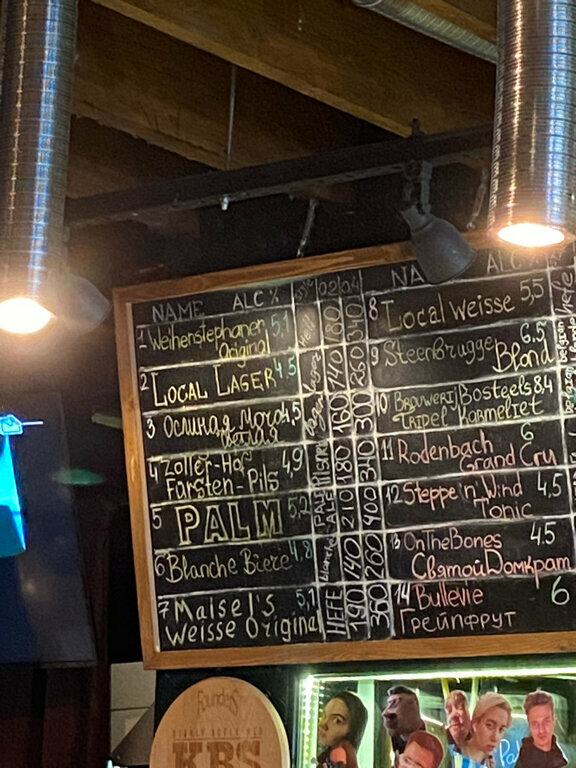 NAME ALC % 0,2 0,4
1 Weihenstephaner 5,1 180 340
Original
2 LOCAL LAGER 4,5 140 260
3 Ослиная Моча 4,5 160 300
4 Zoller-Hof 4,9 Pilsner 180 340
Fürsten-Pils
5 PALM 5,2 PALE ALE 210 400
6 Blanche Biere 4,8 blanche 140 260
7 Maisel's 5,1 HEFE 190 360
Weisse Original
NA ALC %
8 Local Weisse 5,5
9 Steenbrugge 6.5
Blond
10 BROUWERIJ Bosteels 8.4
TRIPEL Karmeliet
11 Rodenbach 6
Grand Cru
12 Steppe'n_Wind 4,5
Tonic
13 OnTheBones 4.5
Святой Домкрат
14 Bullevie 6
Грейпфрут
Founders
KBS